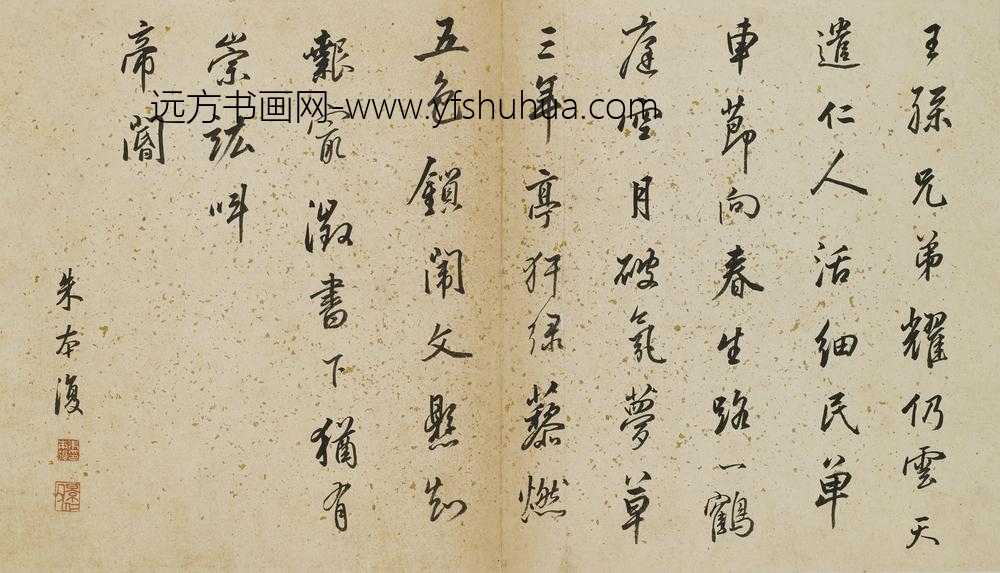 王孫兄弟耀仍雲天
遣仁人活細民單
車節向春生路一鶴
庭空月破氛夢草
三年亭犴綠藜燃
五色鎖闈文懸知
艱家徵書下猶有
崇竑叫
帝閽
朱本復
远方书画网-www.yfshuhua.com